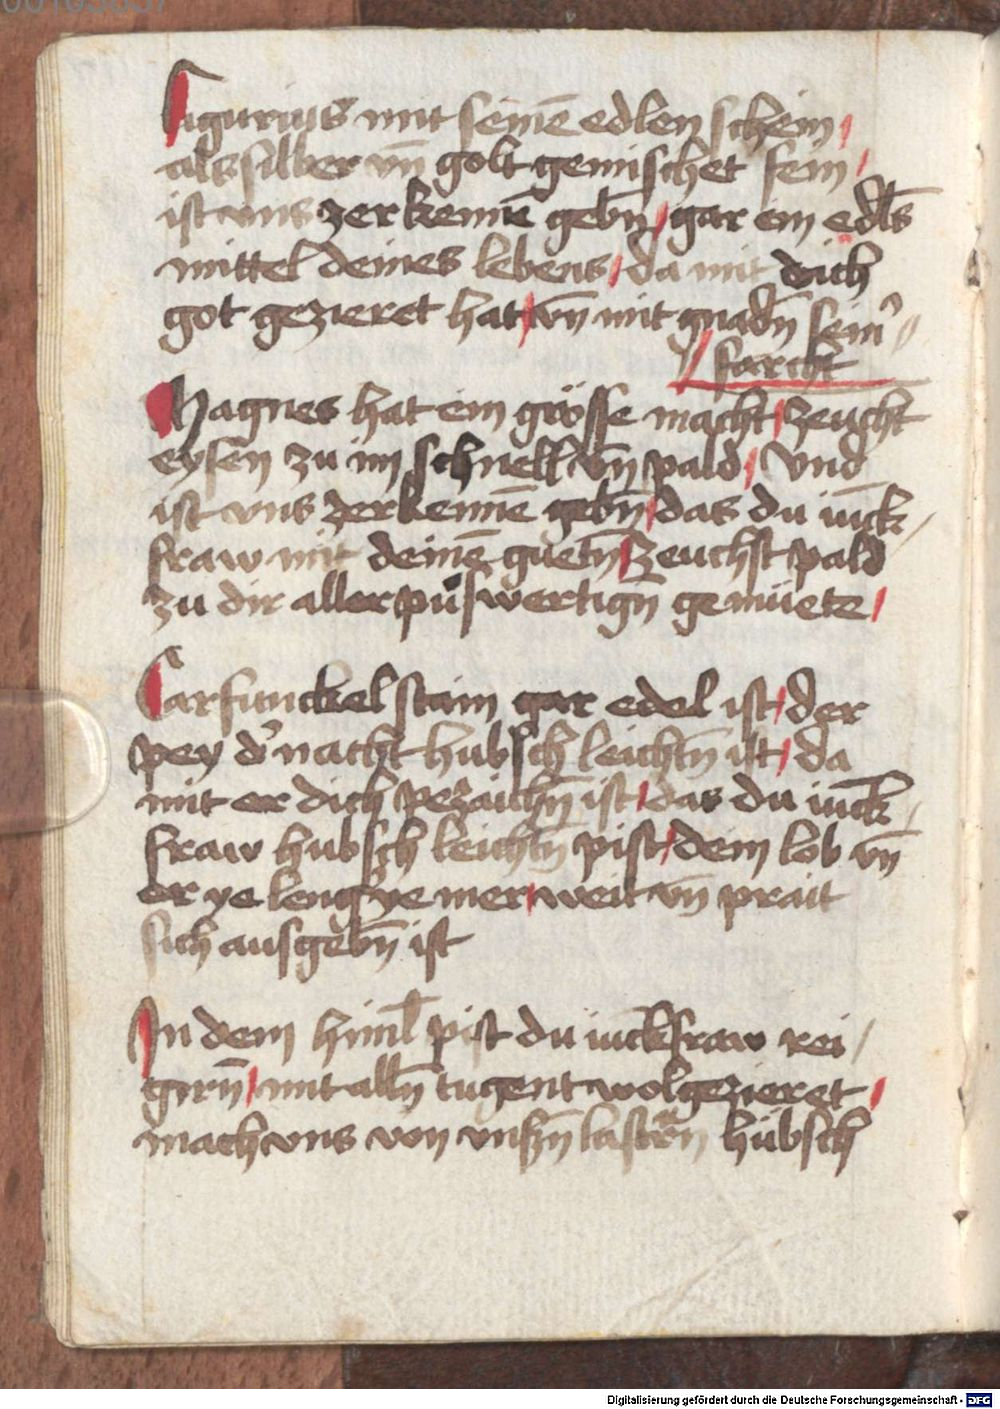 Ligurius mit seinē edlen schein /
als silber vn̄ golt gemischet fein /
ist vns zerkennē gebn̄ / gar ein edls
mittel deines lebens / da mit dich
got gezieret hat / vn̄ mit gnadn̄ sein'
farcht
Magnes hat ein grösse macht / zeucht
eysen zu im schnell vn̄ pald / vnd
ist vns zerkennē gebn̄ / das du iūck
fraw mit deinē guetn̄ / zeuchst pald
zu dir aller puswertign̄ gemüete /
Carfunckel stain gar edel ist / der
pey d' nacht hubsch leichtn̄ ist / da
mit er dich pezaichn̄ ist / das du iūck
fraw hubsch leichtn̄ pist / dein lob vn̄
er ye leng ye mer / weit vn̄ prait
sich ausgebn̄ ist
In dem himl pist du iūckfraw rei
girn̄ / mit alln̄ tugent wolgezieret /
mach vns von vnsn̄ lastern hübsch
Digitalisierung gefördert durch die Deutsche Forschungsgemeinschaft - DFG